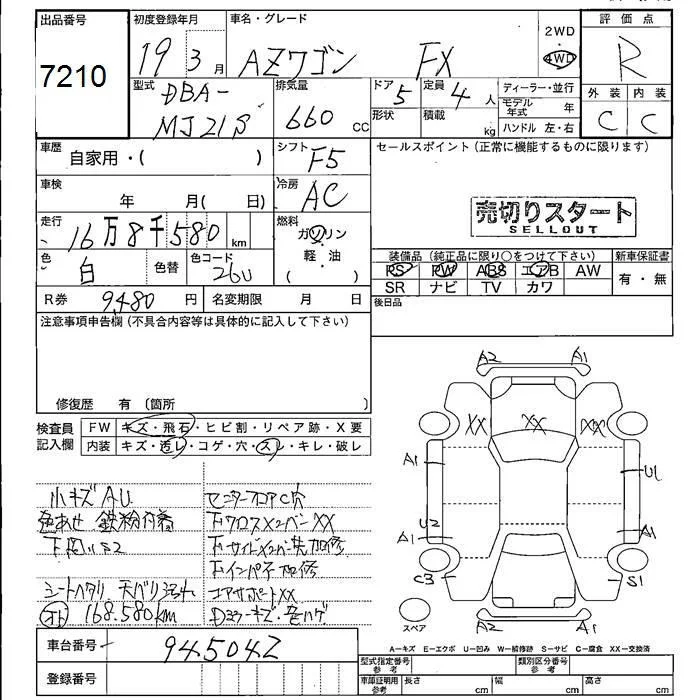 出品番号
7210
初度登録年月
19 3月
車名・グレード
AZワゴン FX
2WD
4WD
評価点
R
外装 内装
C C
型式 DBA-
MJ21S
排気量
660 CC
ドア 5
形状
定員 4人
積載 kg
ディーラー・並行
モデル年式 年
ハンドル 左・右
車歴
自家用・( )
シフト F5
セールスポイント (正常に機能するものに限ります)
車検
年 月( 日)
冷房 AC
売切りスタート
SELLOUT
走行
16万8千580km
燃料
ガソリン
・
軽・油
( )
色
白
色替
色コード
26U
装備品 (純正品に限り○をつけて下さい)
PS PW ABS エアB AW
SR ナビ TV カワ
新車保証書
有・無
R券 9,480円
名変期限 月 日
後日品
注意事項申告欄 (不具合内容等は具体的に記入して下さい)
修復歴 有 (箇所 )
検査員記入欄
FW キズ・飛石・ヒビ割・リペア跡・X要
内装 キズ・汚レ・コゲ・穴・スレ・キレ・破レ
小キズ AU
色あせ 鉄粉付着
シートヘタリ 天ベリ汚れ
オト 168.580km
センターフロアC穴
下クロスメンバーXX
下サイドメンバー先加修
下インパネ加修
コアサポートXX
Dミラーキズ・
A2 A1
XX XX XX
A1
U1
U2
A1 A1
C3 S1
A2 A1
スペア
A-キズ E-エクボ U-凹み W-補修跡 S-サビ C-腐食 XX-交換済
車台番号 945042
登録番号
型式指定番号 参考
類別区分番号 参考
車庫証明用 参考
長さ cm
幅 cm
高さ cm